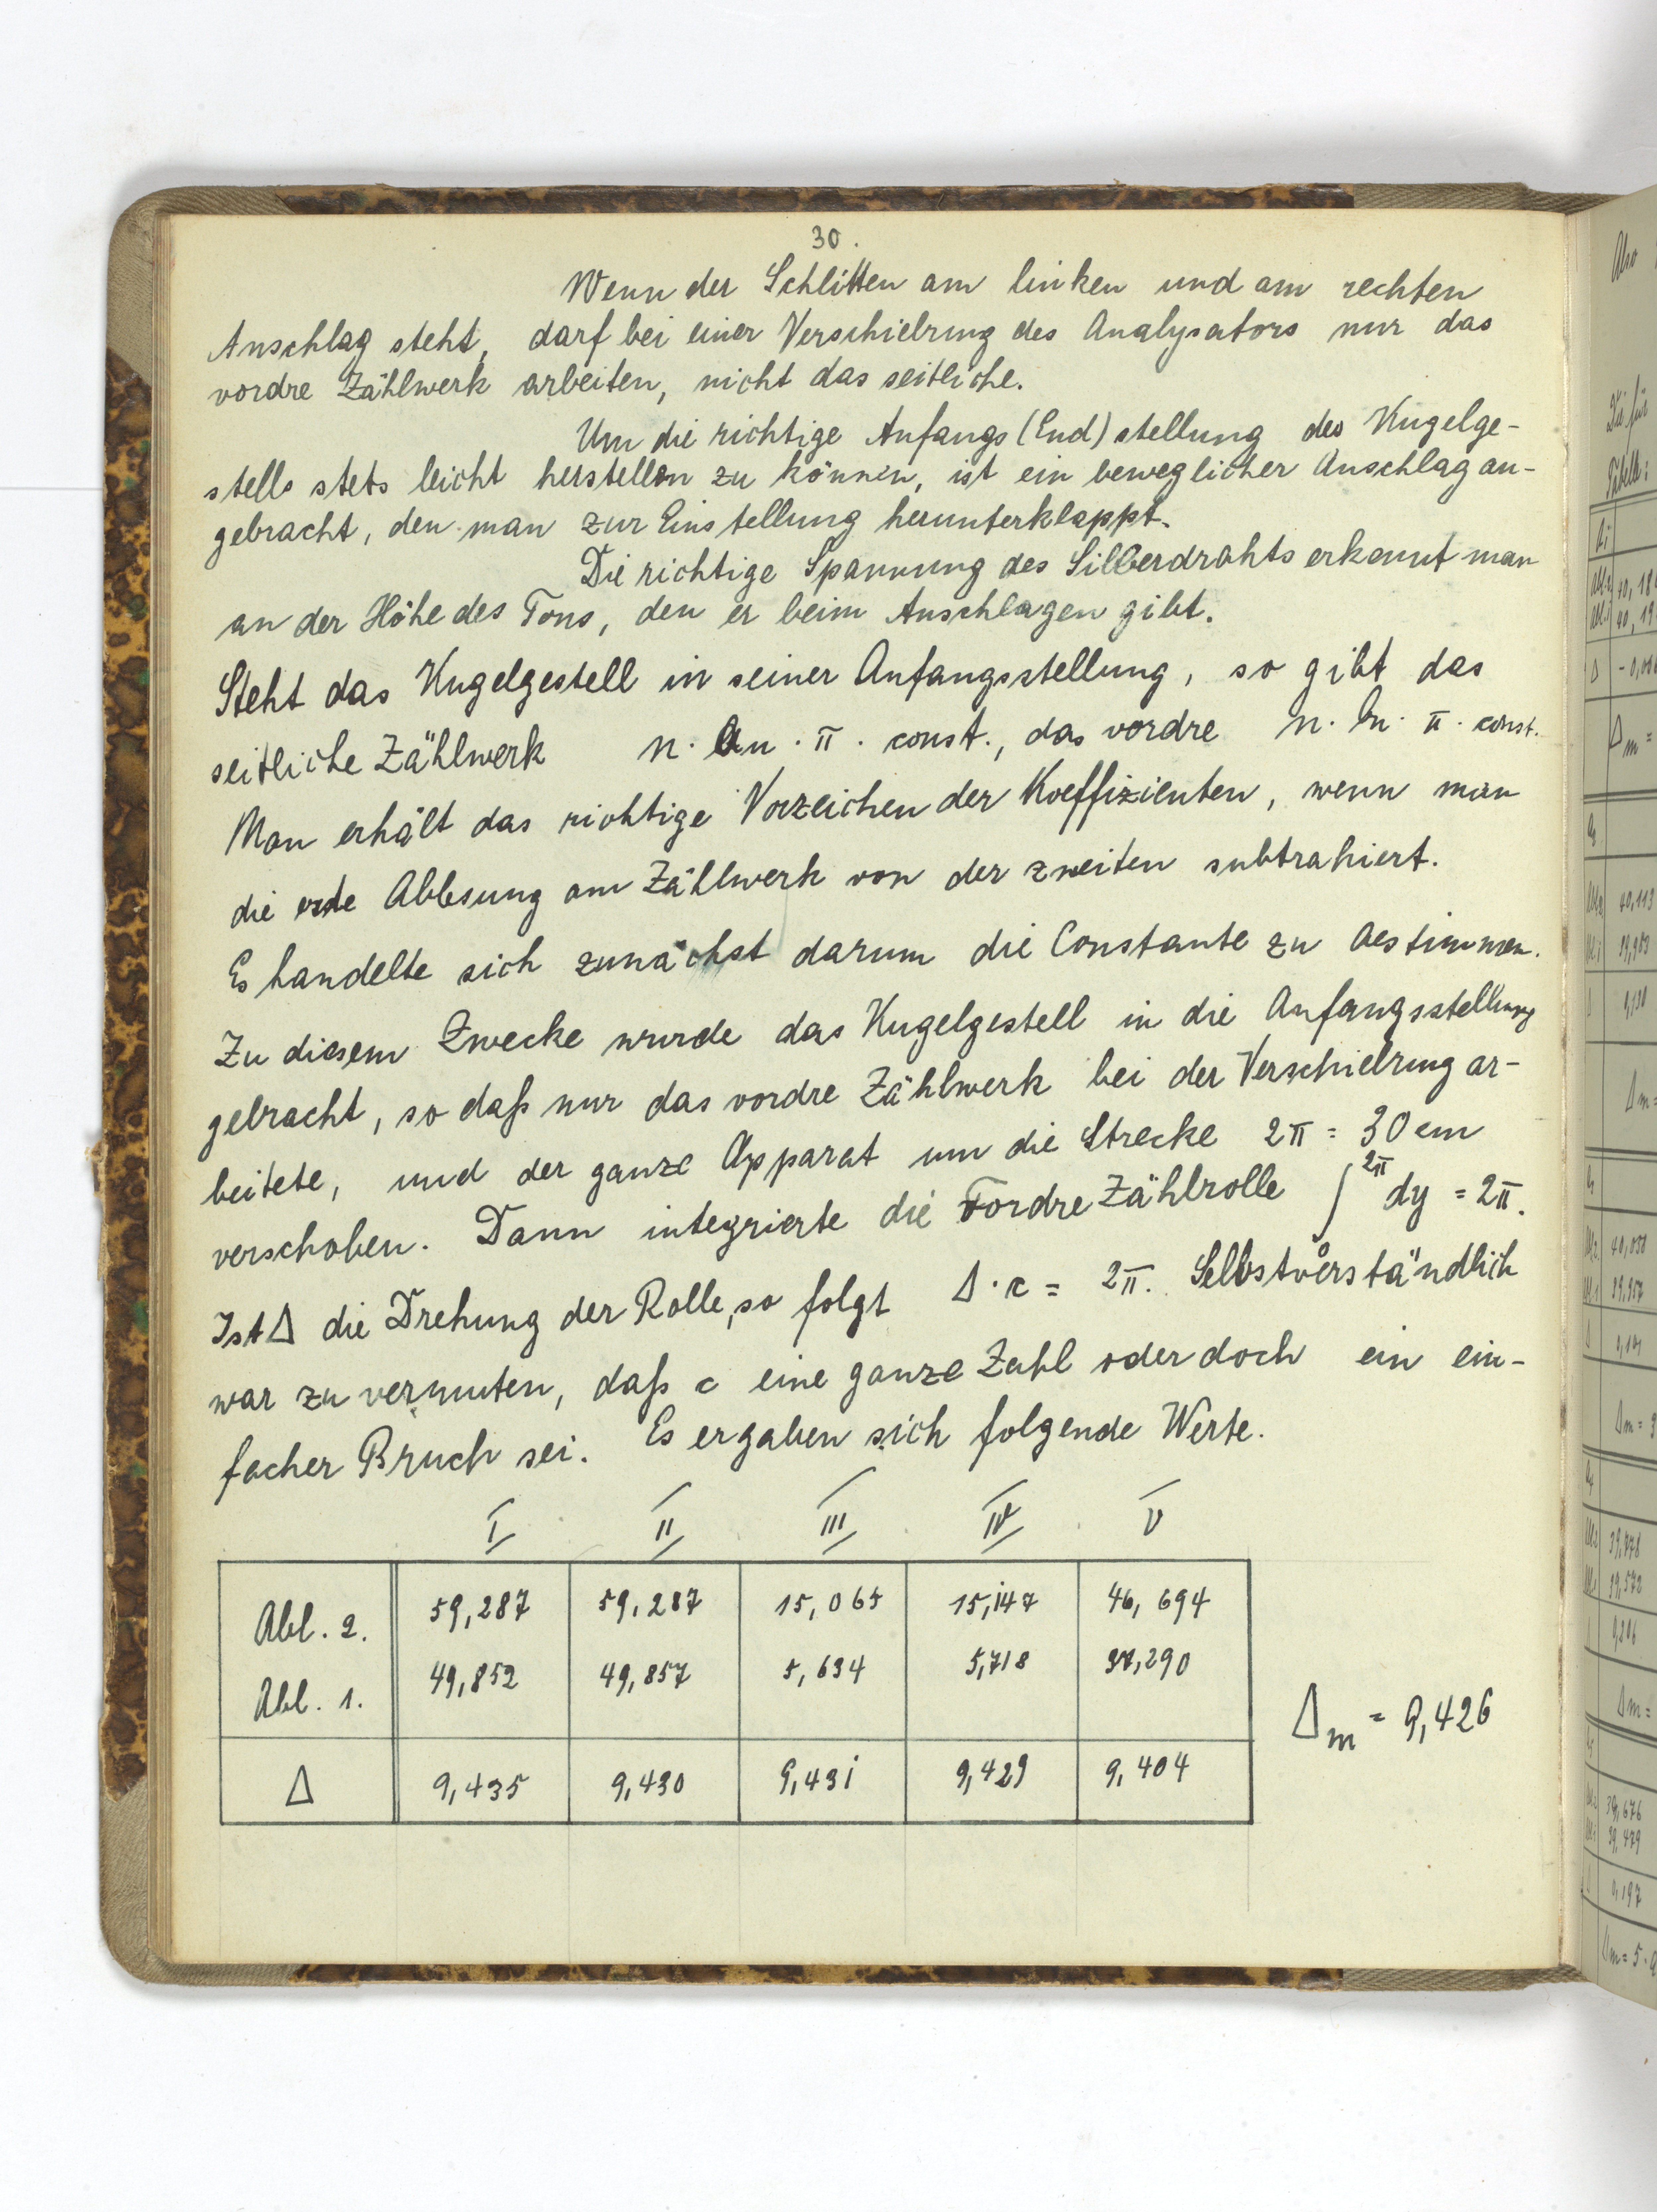 30.
Wenn der Schlitten am linken und am rechten
Anschlag steht, darf bei einer Verschiebung des Analysators nur das
vordre Zählwerk arbeiten, nicht das seitliche.
Um die richtige Anfangs (End) stellung des Kugelge-
stells stets leicht herstellen zu können, ist ein beweglicher Anschlag an-
gebracht, den man zur Einstellung herunterklappt.
Die richtige Spannung des Silberdrahts erkennt man
an der Höhe des Tons, den er beim Anschlagen gibt.
Steht das Kugelgestell in seiner Anfangsstellung, so gibt das
seitliche Zählwerk n. an . π . const., das vordre n. bn. π . const.
Man erhält das richtige Vorzeichen der Koeffizienten, wenn man
die erste Ablesung am Zählwerk von der zweiten subtrahiert.
Es handelte sich zunächst darum die Constante zu bestimmen.
Zu diesem Zwecke wurde das Kugelgestell in die Anfangsstellung
gebracht, so daß nur das vordre Zählwerk bei der Verschiebung ar-
beitete, und der ganze Apparat um die Strecke 2π = 30 cm
verschoben. Dann integrierte die vordre Zählrolle ∫²π dy = 2π.
Ist Δ die Drehung der Rolle, so folgt Δ·c = 2π. Selbstverständlich
war zu vermuten, daß c eine ganze Zahl oder doch ein ein-
facher Bruch sei. Es ergaben sich folgende Werte.
I II III IV V
Abl. 2. 59,287 59,287 15,065 15,147 46,694
Abl. 1. 49,852 49,857 5,634 5,718 37,290
Δ 9,435 9,430 9,431 9,429 9,404
Δm = 9,426